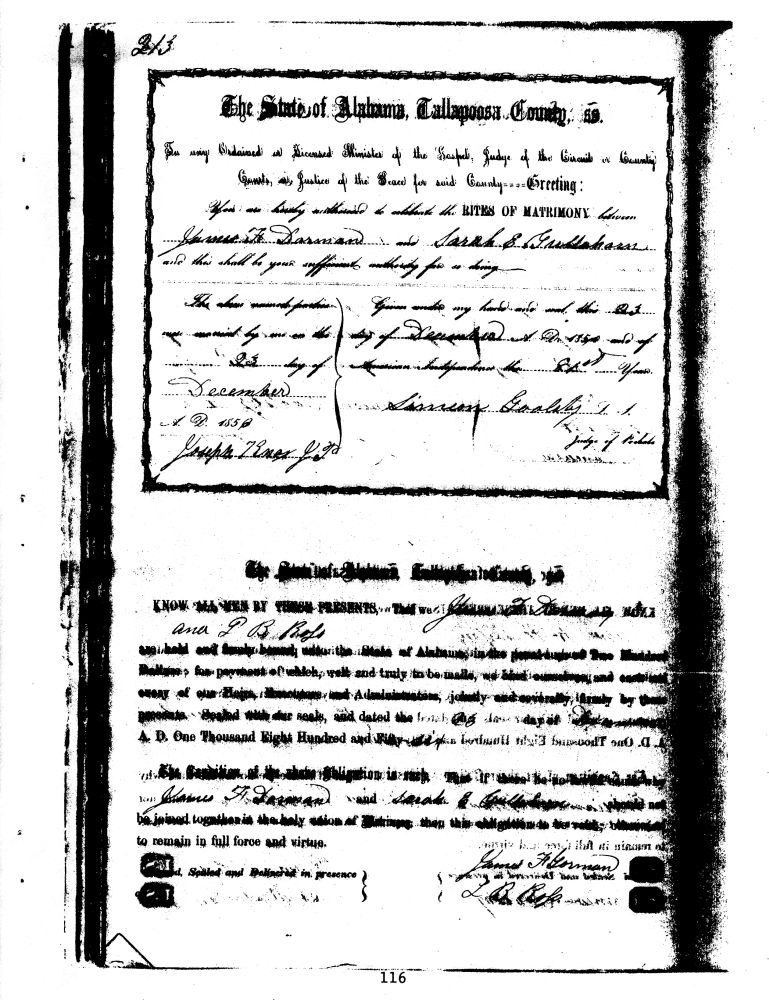 213
The State of Alabama, Tallapoosa County, ss.
To any Ordained or Licensed Minister of the Gospel, Judge of the Circuit or County
Courts, or Justice of the Peace for said County----Greeting:
You are hereby authorized to celebrate the RITES OF MATRIMONY between
James F. Dorman and Sarah E
and this shall be your sufficient authority for so doing
The above named parties
were married by me on the
23 day of
December
A. D. 1856
Joseph Knox J P
Given under my hand and seal, this 23
day of December A. D. 1856 and of
American Independence the 81st Year
Simeon Goolsby
Judge of Probate
The State of Alabama, Tallapoosa County,
KNOW ALL MEN BY THESE PRESENTS, That we James F. Dorman
and L B Ross
are held and firmly bound, unto the State of Alabama, in the penal sum of Two Hundred
Dollars; for payment of which, well and truly to be made, we bind ourselves, and each and
every of our Heirs, Executors and Administrators, jointly and severally, firmly by these
presents. Sealed with our seals, and dated the day of
A. D. One Thousand Eight Hundred and Fifty
The Condition of the above Obligation is such, That if there be no
James F. Dorman and Sarah E should not
be joined together in the holy union of Matrimony, then this obligation to be void; otherwise
to remain in full force and virtue.
Sealed and Delivered in presence
James F Dorman
L B Ross
116